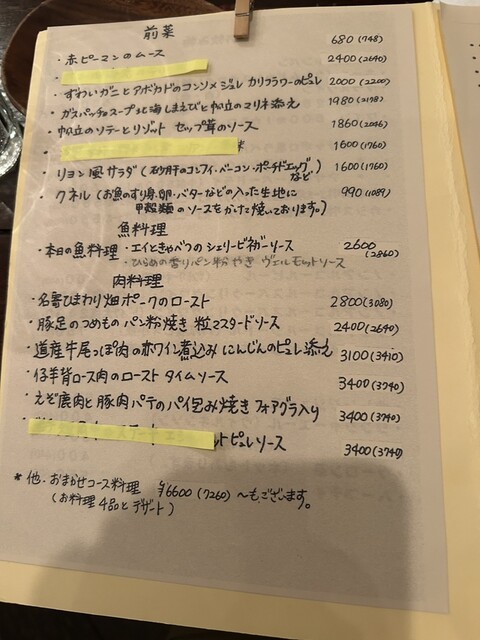 前菜
・赤ピーマンのムース 680(748)
2400(2640)
・ずわいガニとアボカドのコンソメジュレ カリフラワーのピュレ 2000(2200)
・ガスパッチョスープ 北海しまえびと帆立のマリネ添え 1980(2178)
・帆立のソテーとリゾット セップ茸のソース 1860(2046)
1600(1760)
・リヨン風サラダ(砂肝のコンフィ・ベーコン・ポーチドエッグなど) 1600(1760)
・クネル(お魚のすり身・卵・バターなどの入った生地に 990(1089)
甲殻類のソースをかけて焼いております。)
魚料理
・本日の魚料理・エイときゃべつのシェリービネガーソース 2600(2860)
・ひらめの香りパン粉やき ヴェルモットソース
肉料理
・名寄ひまわり畑ポークのロースト 2800(3080)
・豚足のつめもの パン粉焼き 粒マスタードソース 2400(2640)
・道産牛尾っぽ肉の赤ワイン煮込み にんじんのピュレ添え 3100(3410)
・仔羊背ロース肉のロースト タイムソース 3400(3740)
・えぞ鹿肉と豚肉パテのパイ包み焼き フォアグラ入り 3400(3740)
ピュレソース 3400(3740)
*他・おまかせコース料理 ¥6600(7260)〜もございます。
(お料理4品とデザート)